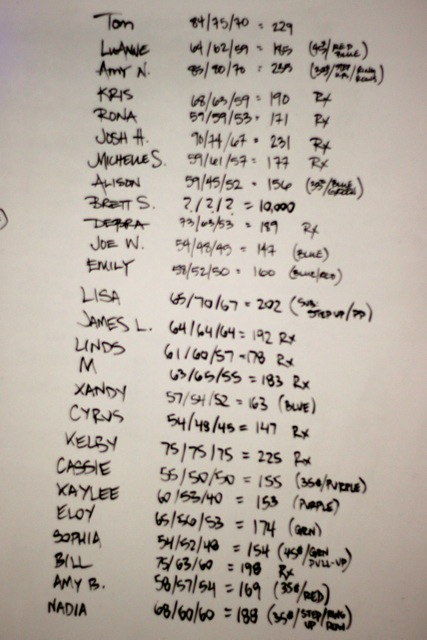 Tom 84/75/70 = 229
LUANNE 64/62/59 = 185 (45#/RED BLUE)
AMY N. 85/80/70 = 235
KRIS 68/63/59 = 190 Rx
RONA 59/59/53 = 171 Rx
JOSH H. 90/74/67 = 231 Rx
MICHELLE S. 59/61/57 = 177 Rx
ALISON 59/45/52 = 156 (35#/BLUE GREEN)
BRETT S. ?/?/? = 10,000
DEBRA 73/63/53 = 189 Rx
JOE W. 54/48/45 = 147 (BLUE)
EMILY 58/52/50 = 160 (BLUE/RED)
LISA 65/70/67 = 202 (SUB STEP UP/PD)
JAMES L. 64/64/64 = 192 Rx
LINDS 61/60/57 = 178 Rx
M 63/65/55 = 183 Rx
XANDY 57/54/52 = 163 (BLUE)
CYRUS 54/48/45 = 147 Rx
KELBY 75/75/75 = 225 Rx
CASSIE 55/50/50 = 155 (35#/PURPLE)
KAYLEE 60/53/40 = 153 (PURPLE)
ELOY 65/56/53 = 174 (GRN)
SOPHIA 54/52/48 = 154 (45#/GRN PULL-UP)
BILL 75/63/60 = 198 Rx
AMY B. 58/57/54 = 169 (35#/RED)
NADIA 68/60/60 = 188 (35#/STEP UP/RING ROW)